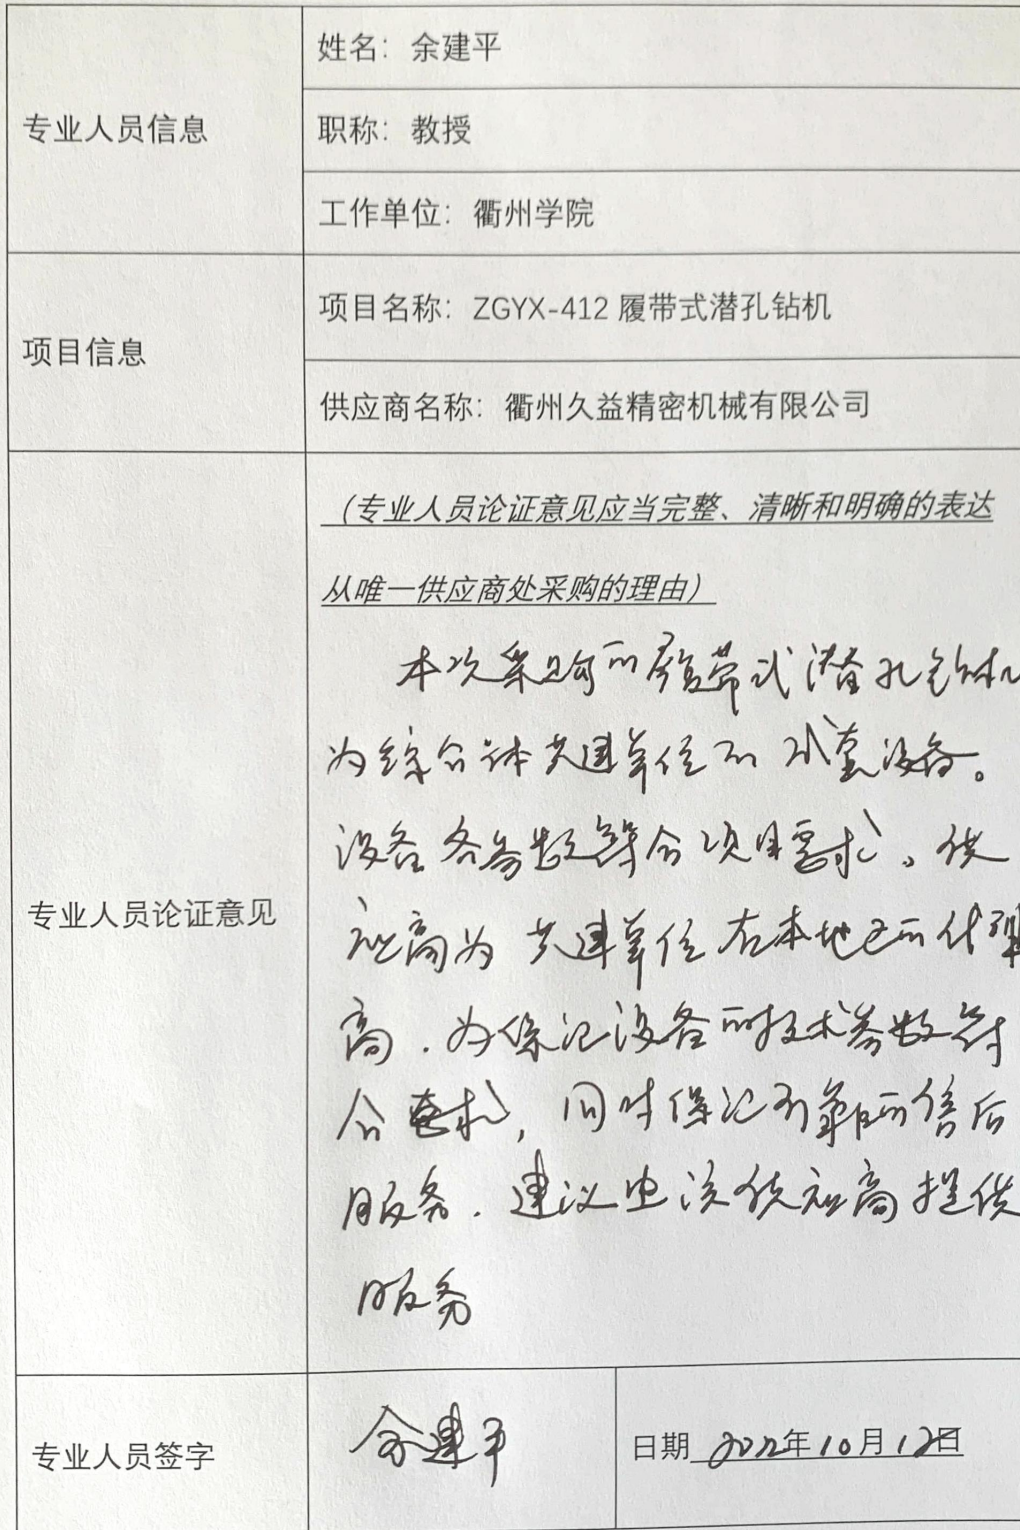 专业人员信息
姓名：余建平
职称：教授
工作单位：衢州学院
项目信息
项目名称：ZGYX-412 履带式潜孔钻机
供应商名称：衢州久益精密机械有限公司
专业人员论证意见
（专业人员论证意见应当完整、清晰和明确的表达
从唯一供应商处采购的理由）
本次采购的履带式潜孔钻机
为综合体共建单位的设备。
设备各参数符合项目要求。供
应商为共建单位在本地区的代理
商．为保证设备的技术参数符
合要求，同时保证可靠的售后
服务．建议由该供应商提供
服务
专业人员签字
余建平
日期 2022年10月12日